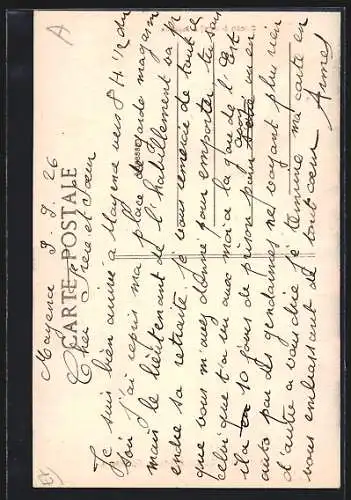 Mayence 9. 7. 26
CARTE POSTALE
Cher Frère et Sœur
Je suis bien arrivé a Mayence vers 8 H 1/2 du
soir j'ai repris ma place de garde magasin
mais le lieutenant de l'habillement ça
endre sa retraite je vous remercie de tout ce
que vous m'avez donné pour emporter tu sais
celui que t'a vu avec moi a la gare de l'Est
il a 10 jours de prison pour avoir
auto par les gendarmes ne voyant plus rien
d'autre a vous dire je termine ma carte en
vous embrassant de tout cœur
A